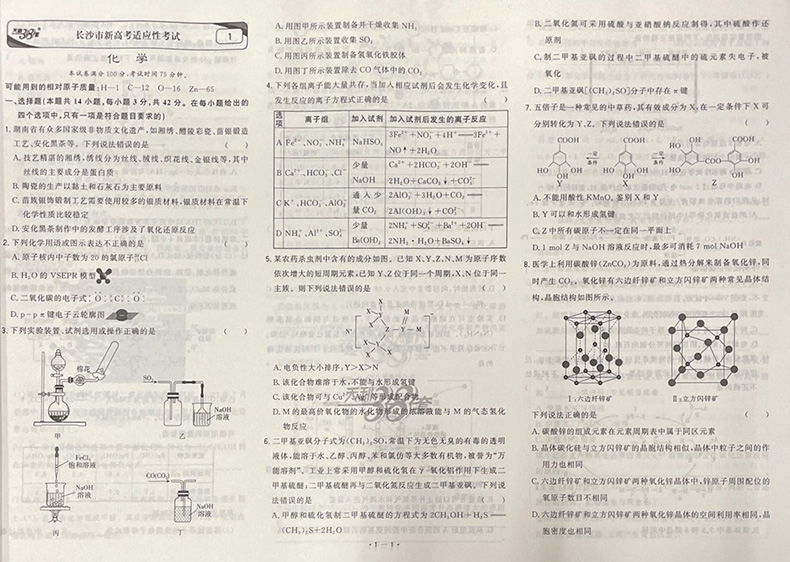 长沙市新高考适应性考试
1
化学
本试卷满分100分,考试时间75分钟。
可能用到的相对原子质量:H—1 C—12 O—16 Zn—65
一、选择题(本题共14小题,每小题3分,共42分。在每小题给出的
四个选项中,只有一项是符合题目要求的)
1.湖南省有众多国家级非物质文化遗产,如湘绣、醴陵彩瓷、苗银锻造
工艺、安化黑茶等。下列说法错误的是 ( )
A.技艺精湛的湘绣,绣线分为丝线、绒线、织花线、金银线等,其中
丝线的主要成分是蛋白质
B.陶瓷的生产以黏土和石灰石为主要原料
C.苗族银饰锻制工艺需要使用较多的银质材料,银质材料在常温下
化学性质比较稳定
D.安化黑茶制作中的发酵工序涉及了氧化还原反应
2.下列化学用语或图示表达不正确的是 ( )
A.原子核内中子数为20的氯原子³⁷₁₇Cl
B.H₂O的VSEPR模型
C.二氧化碳的电子式:
D.p-pπ键电子云轮廓图
3.下列实验装置、试剂选用或操作正确的是 ( )
棉花
甲
SO₂
NaOH
溶液
乙
FeCl₃
饱和溶液
NaOH
溶液
丙
CO(CO₂)
NaOH
溶液
丁
A.用图甲所示装置制备并干燥收集NH₃
B.用图乙所示装置收集SO₂
C.用图丙所示装置制备氢氧化铁胶体
D.用图丁所示装置除去CO气体中的CO₂
4.下列各组离子能大量共存,当加入相应试剂后会发生化学变化,且
发生反应的离子方程式正确的是 ( )
选项 离子组 加入试剂 加入试剂后发生的离子反应
A Fe²⁺、NO₃⁻、NH₄⁺ NaHSO₄ 3Fe²⁺+NO₃⁻+4H⁺══3Fe³⁺+
NO↑+2H₂O
B Ca²⁺、HCO₃⁻、Cl⁻ 少量NaOH Ca²⁺+2HCO₃⁻+2OH⁻══
2H₂O+CaCO₃↓+CO₃²⁻
C K⁺、HCO₃⁻、AlO₂⁻ 通入少量CO₂ 2AlO₂⁻+3H₂O+CO₂══
2Al(OH)₃↓+CO₃²⁻
D NH₄⁺、Al³⁺、SO₄²⁻ 少量Ba(OH)₂ 2NH₄⁺+SO₄²⁻+Ba²⁺+2OH⁻══
2NH₃·H₂O+BaSO₄↓
5.某农药杀虫剂中含有的成分如图。已知X、Y、Z、N、M为原子序数
依次增大的短周期元素,已知Y、Z位于同一个周期,X、N位于同一
主族。则下列说法错误的是 ( )
A.电负性大小排序:Y>X>N
B.该化合物难溶于水,不能与水形成氢键
D.M的最高价氧化物的水化物形成的浓溶液能与M的气态氢化
物反应
6.二甲基亚砜分子式为(CH₃)₂SO,常温下为无色无臭的有毒的透明
液体,能溶于水、乙醇、丙醇、苯和氯仿等大多数有机物,被誉为“万
能溶剂”。工业上常采用甲醇和硫化氢在γ-氧化铝作用下生成二
甲基硫醚;二甲基硫醚再与二氧化氮反应生成二甲基亚砜。下列说
法错误的是 ( )
A.甲醇和硫化氢制二甲基硫醚的方程式为2CH₃OH+H₂S══
(CH₃)₂S+2H₂O
B.二氧化氮可采用硫酸与亚硝酸钠反应制得,其中硫酸作还
原剂
C.制二甲基亚砜的过程中二甲基硫醚中的硫元素失电子,被
氧化
D.二甲基亚砜[(CH₃)₂SO]分子中存在π键
7.五倍子是一种常见的中草药,其有效成分为X,在一定条件下X可
分别转化为Y、Z。下列说法错误的是 ( )
Y
X
Z
A.不能用酸性KMnO₄鉴别X和Y
B.Y可以和水形成氢键
C.Z中所有碳原子不一定在同一平面上
D.1 mol Z与NaOH溶液反应时,最多可消耗7 mol NaOH
8.医学上利用碳酸锌(ZnCO₃)为原料,通过热分解来制备氧化锌,同
时产生CO₂。氧化锌有六边纤锌矿和立方闪锌矿两种常见晶体结
构,晶胞结构如图所示。
Ⅰ:六边纤锌矿
Ⅱ:立方闪锌矿
下列说法正确的是 ( )
A.碳酸锌的组成元素在元素周期表中属于同区元素
B.晶体碳化硅与立方闪锌矿的晶胞结构相似,晶体中粒子之间的作
用力也相同
C.六边纤锌矿和立方闪锌矿两种氧化锌晶体中,锌原子周围配位的
氧原子数目不相同
D.六边纤锌矿和立方闪锌矿两种氧化锌晶体的空间利用率相同,晶
胞密度也相同
·1—1·